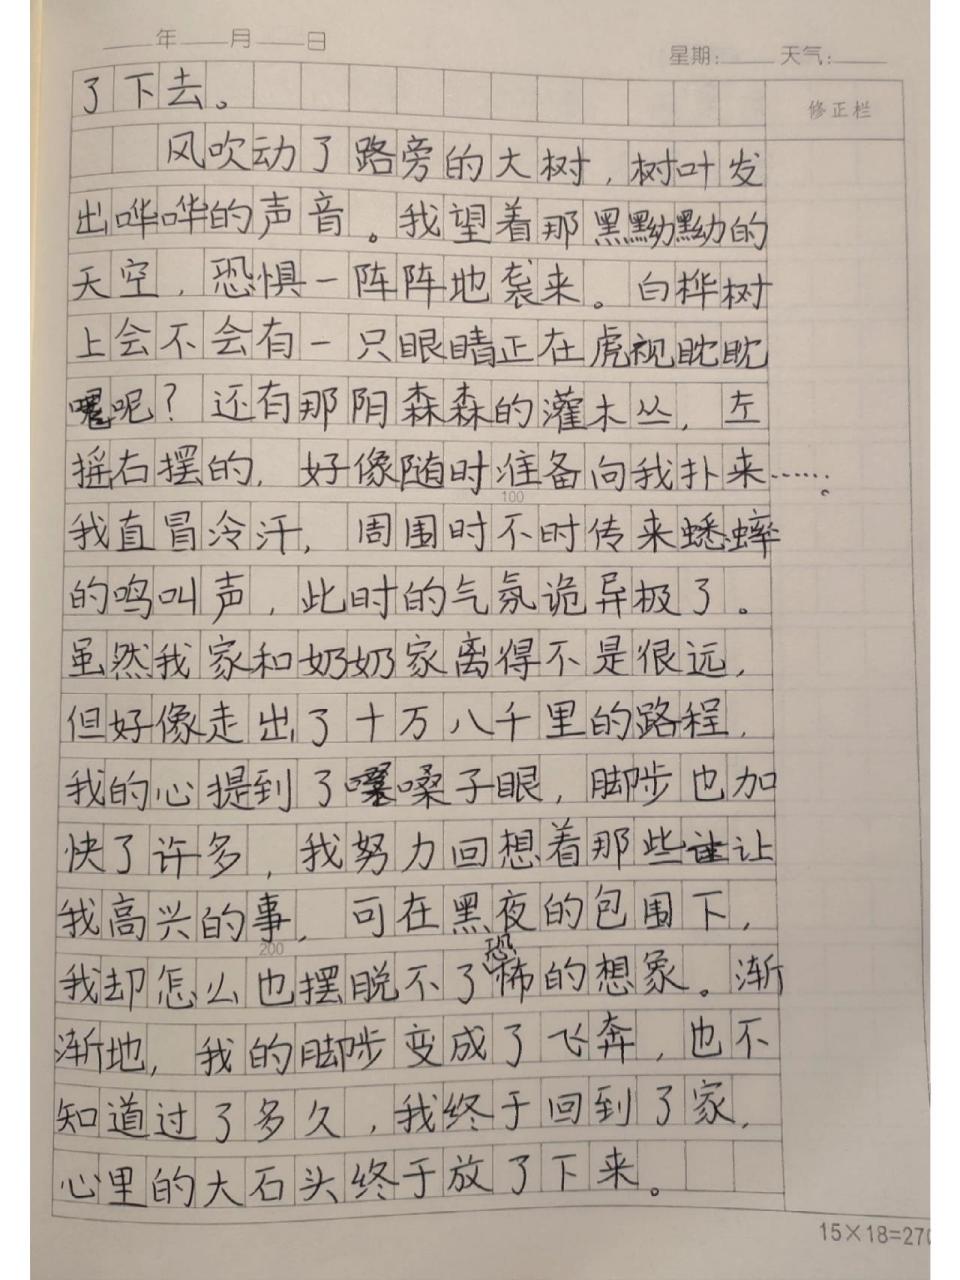 ____年____月____日
星期：____ 天气：____
修正栏
了下去。
风吹动了路旁的大树，树叶发
出哗哗的声音。我望着那黑黝黝的
天空，恐惧一阵阵地袭来。白桦树
上会不会有一只眼睛正在虎视眈眈
呢？还有那阴森森的灌木丛，左
摇右摆的，好像随时准备向我扑来……。
100
我直冒冷汗，周围时不时传来蟋蟀
的鸣叫声，此时的气氛诡异极了。
虽然我家和奶奶家离得不是很远，
但好像走出了十万八千里的路程，
我的心提到了嗓子眼，脚步也加
快了许多，我努力回想着那些让
我高兴的事，可在黑夜的包围下，
200
我却怎么也摆脱不了恐怖的想象。渐
渐地，我的脚步变成了飞奔，也不
知道过了多久，我终于回到了家，
心里的大石头终于放了下来。
15×18=270